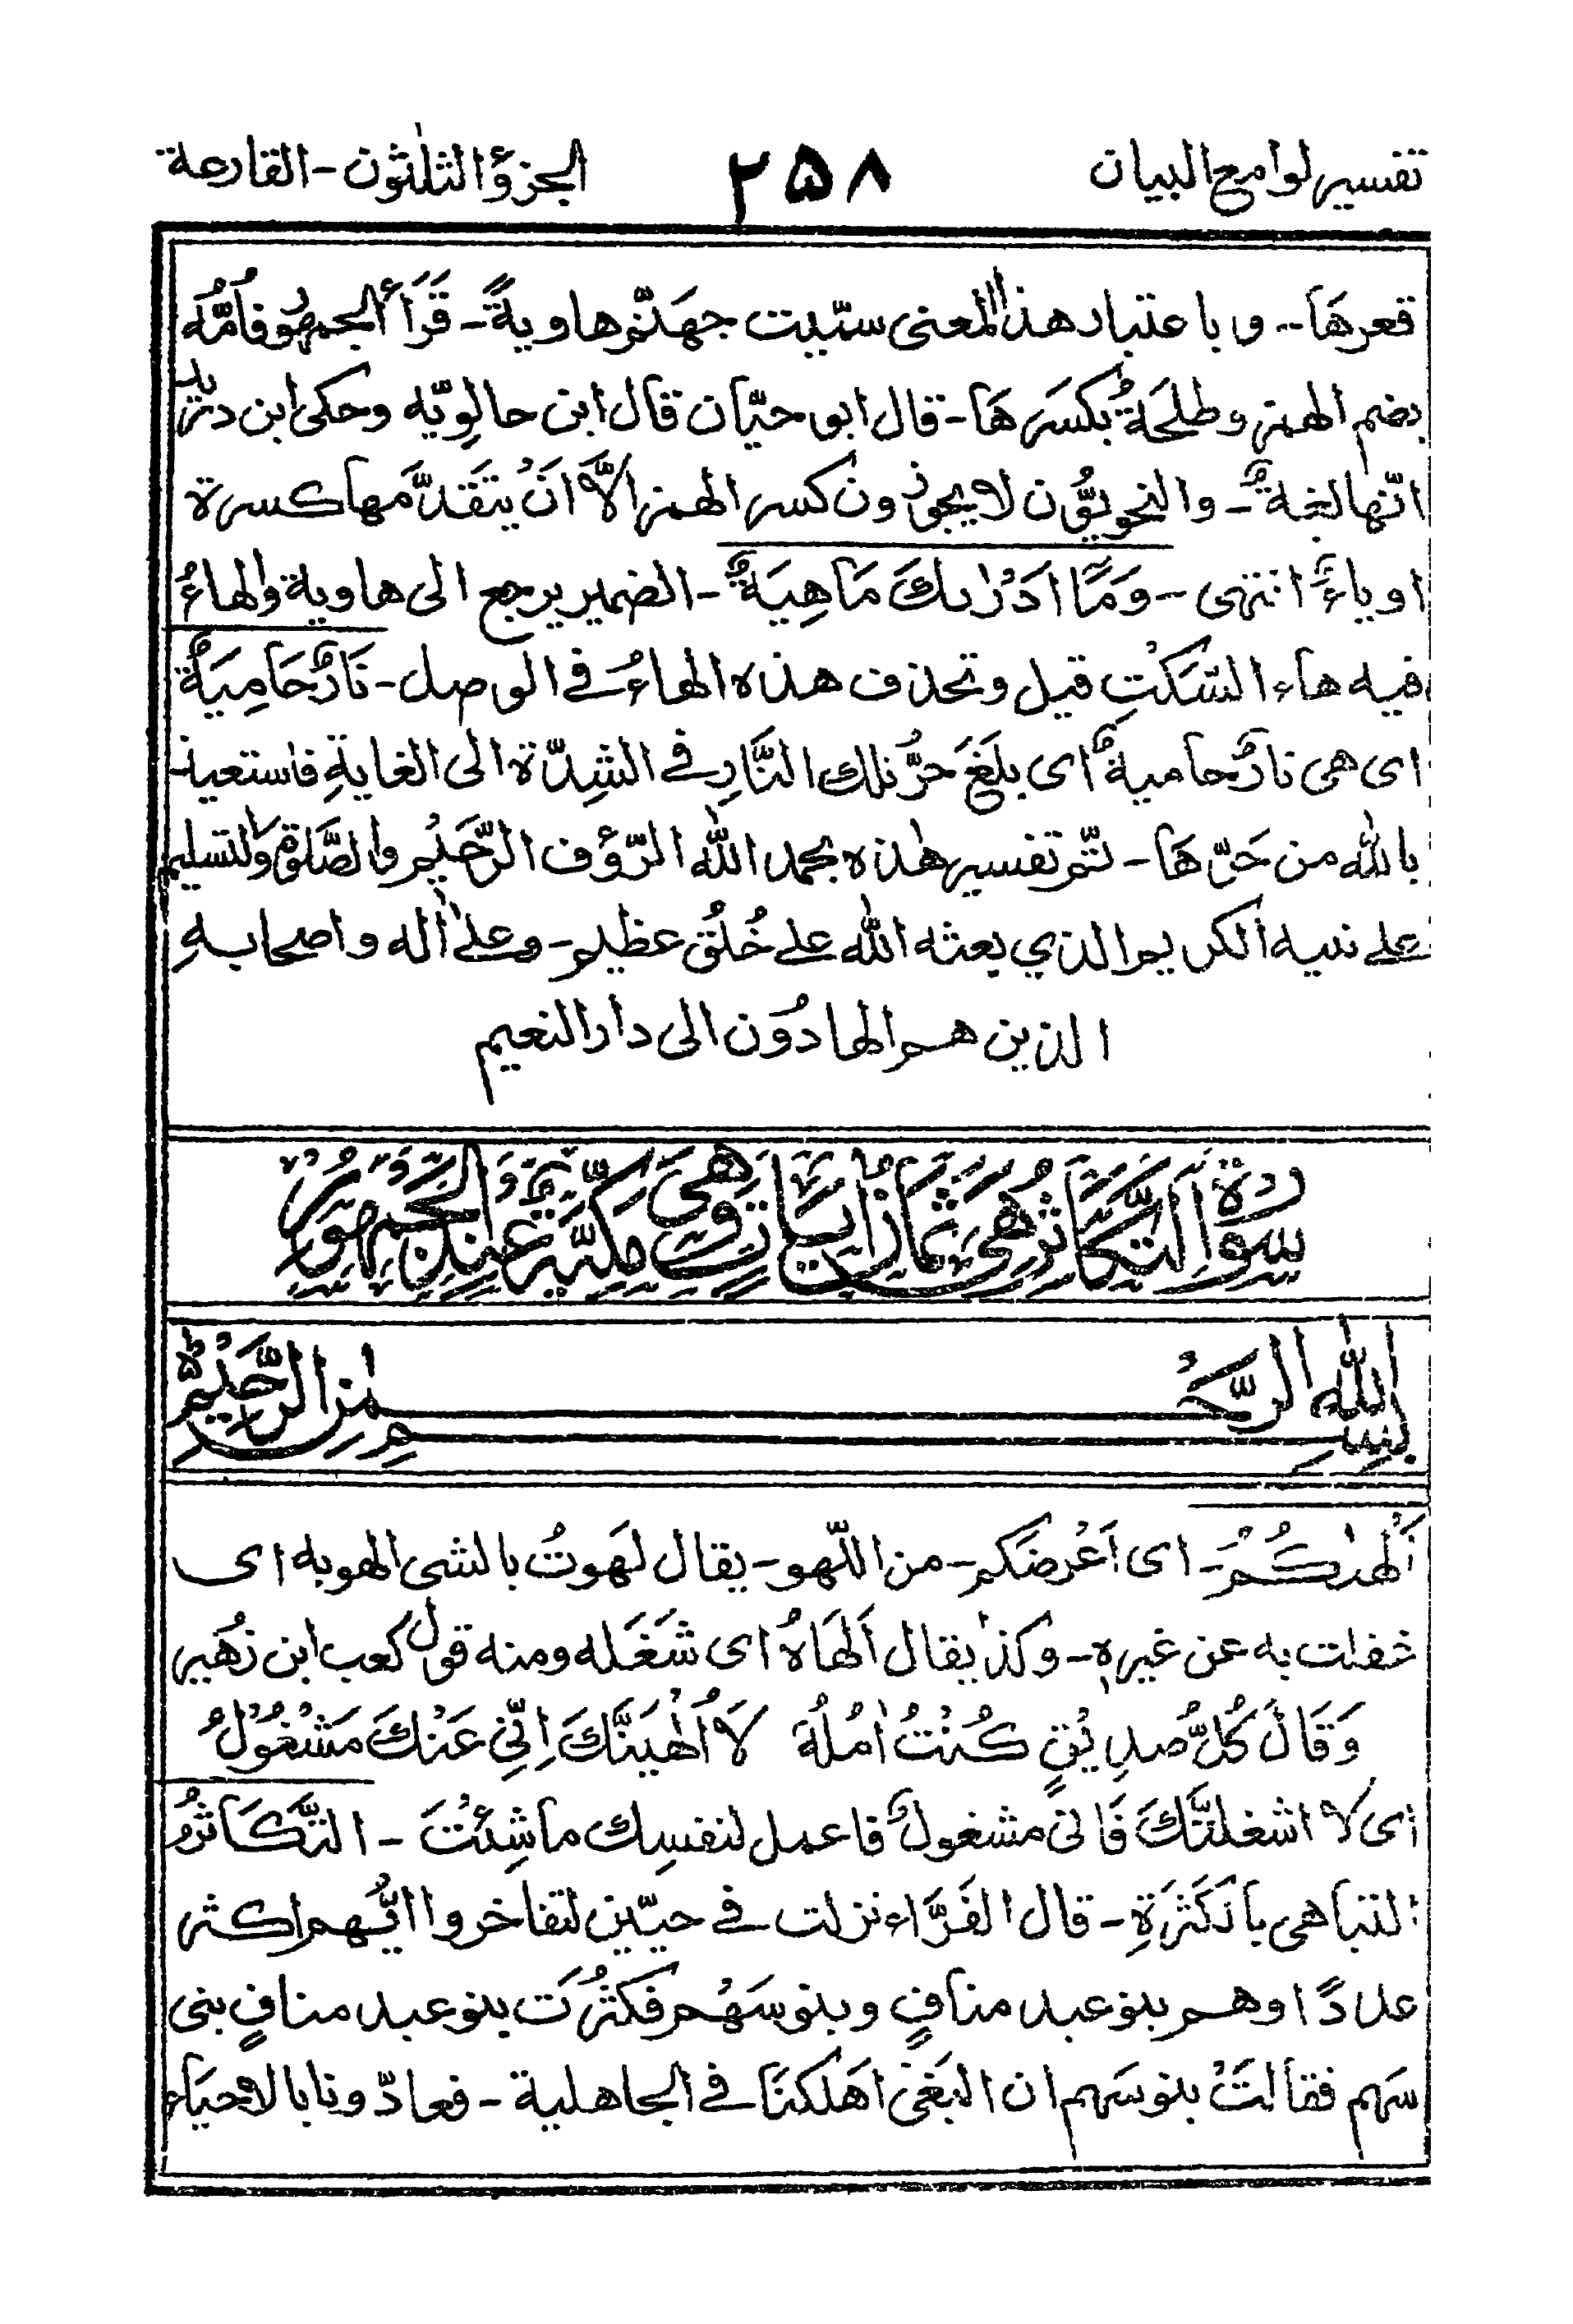 تفسير لوامع البيان ٢٥٨ الجزؤ الثلٰثون - القارعة
قعرهَا - و باعتبار هذا المعنى سمّيت جهنّم هاوية - قَرَأَ الجمهور فَاُمُّه
بضم الهمز و طلحَةُ بكسَرهَا - قال ابو حيّان قال ابن حالِويّه وحكى ابن دريد
انّها لغةٌ - والنحويّون لا يجوزون كسر الهمز الّا انْ يتَقَدّمَها كسرة
او ياءٌ انتهى - وَمَا اَدْرٰىكَ مَاهِيَهْ - الضمير يرجع الى هاوية والهاءُ
فيه هاء السَّكْتِ قيل وتحذف هذه الهاءُ فى الوصل - نَارٌ حَامِيَةٌ
اى هى نارٌ حامية اى بلَغَ حَرُّ تلك النَّارِ فى الشِدّة الى الغايةِ فاستعيذ
بالله من حَرّهَا - تمّ تفسير هٰذه بحمد الله الرّؤف الرّحيم والصَّلوٰة والتسليم
على نبيه الكريم الذي بعثه الله على خُلُق عظيم - وعلىٰ اٰله واصحابهِ
الذين هم الهادُون الى دار النعيم
سورة التكاثر هى ثمان اٰيات وهى مكيّة عند الجمهور
بسم الله الرحمٰن الرحيم
اَلْهٰىكُمُ - اى اَعْرضَكم - من اللّهو - يقال لهَوتُ بالشى الهو به اى
غفلت به عن غيره - وكذا يقال اَلهَاهُ اى شَغَله ومنه قول كعب ابن زهَير
وَقَالَ كُلُّ صدِيْقٍ كُنْتُ اٰمُلُهُ لَا اُلْهِيَنَّكَ اِنِّي عَنْكَ مَشْغُوْلُ
اى لا اشغلنَّكَ فَانى مشغول فاعمل لنفسِك ما شِئْتَ - التَّكَاثُرُ
التباهى بالكَثرَةِ - قال الفَرَّاء نزلت فى حيّين تفاخروا ايُّهم اكثر
عددًا وهم بنو عبد منافٍ وبنو سَهْم فكَثُرَت بنو عبد منافٍ بنى
سَهم فقالتْ بنو سَهم ان البَغىَ اهلَكنَا فى الجاهلية - فعادّونا بالاحيَاء